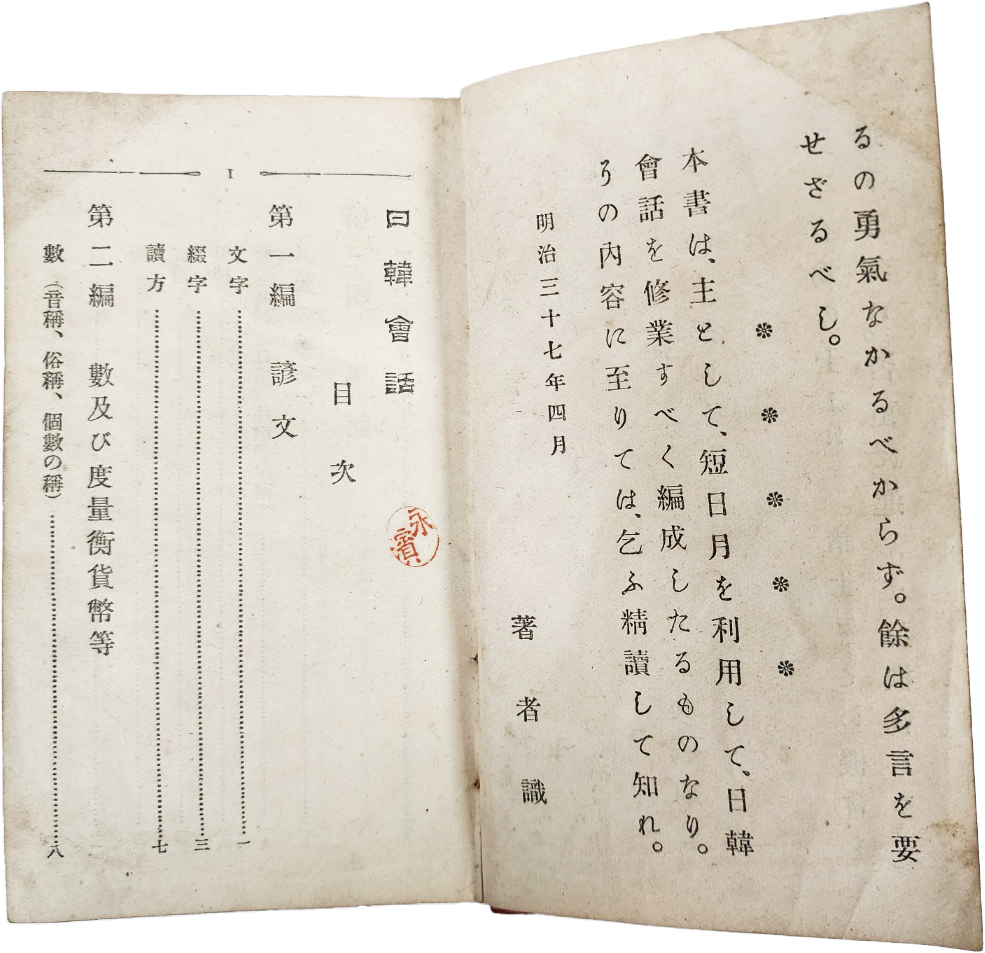 るの勇氣なかるべからず。餘は多言を要
せざるべし。
❊ ❊ ❊ ❊ ❊
本書は、主として、短日月を利用して、日韓
會話を修業すべく編成したるものなり。
その內容に至りては、乞ふ精讀して知れ。
明治三十七年四月
著者識
1
日韓會話
目次
永賓
第一編 諺文
文字……一
綴字……三
讀方……七
第二編 數及び度量衡貨幣等
數(音稱、俗稱、個數の稱)……八